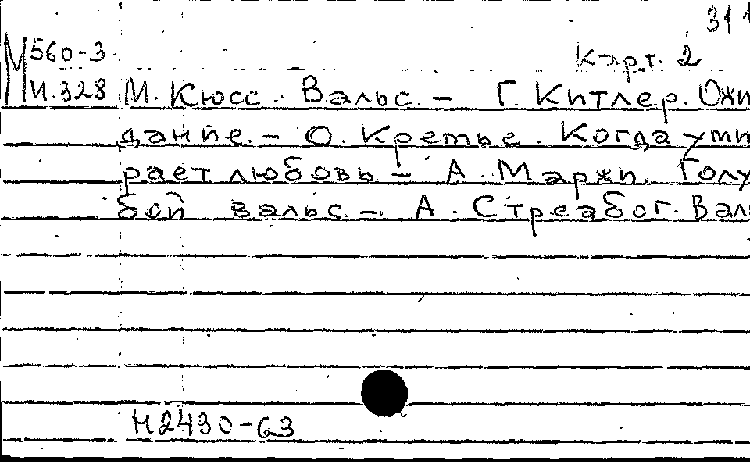 311
М 560-3
Карт. 2
И.328 М. Кюсс. Вальс. - Г. Китлер. Ожи
дание. - О. Кретье. Когда уми
рает любовь - А. Маржи. Голу
бой вальс. - А. Стреабог. Вал
Н2430-63